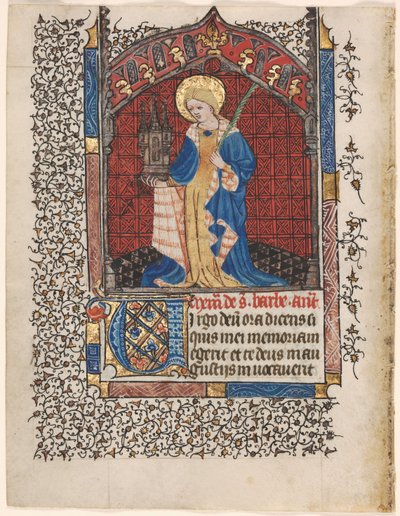 de s. barbe. ant̄
Virgo deū ora dicens si
quis mei memoriam
egerit et te deus in an
gustijs in vocaverit